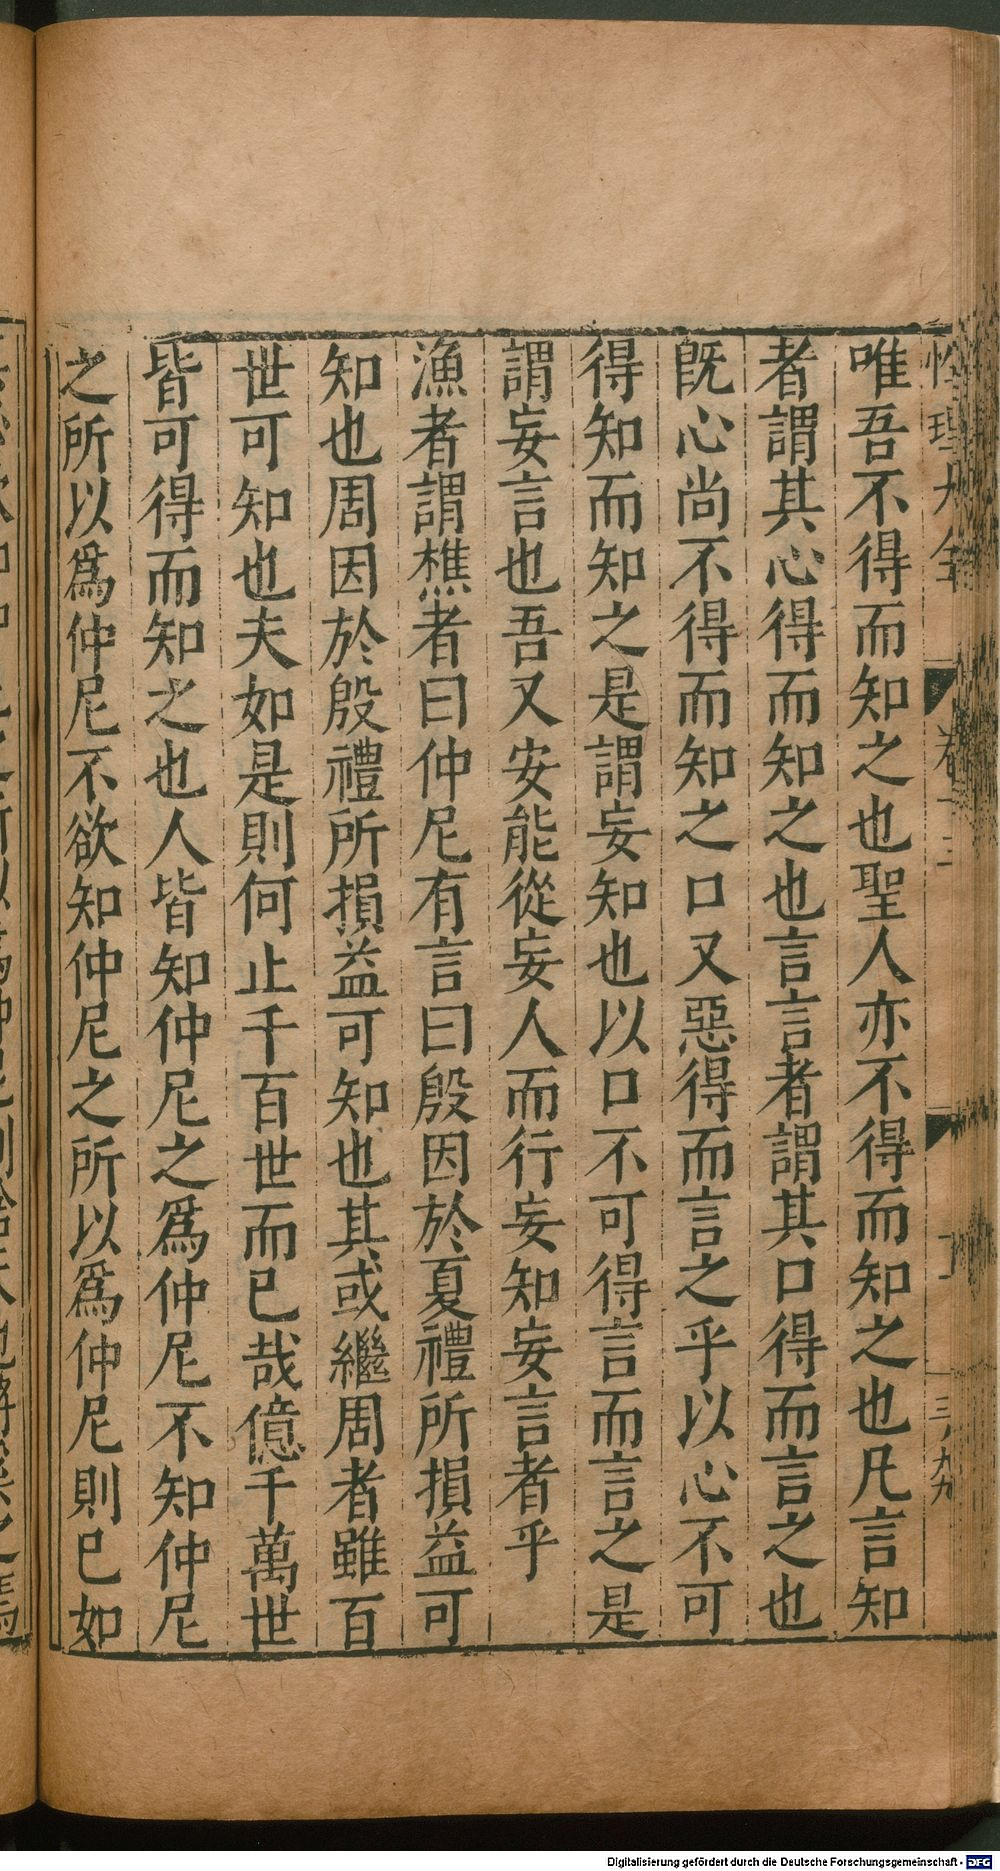 性理大全
卷十三
三ノ九九
唯吾不得而知之也聖人亦不得而知之也凡言知
者謂其心得而知之也言言者謂其口得而言之也
既心尚不得而知之口又惡得而言之乎以心不可
得知而知之是謂妄知也以口不可得言而言之是
謂妄言也吾又安能從妄人而行妄知妄言者乎
漁者謂樵者曰仲尼有言曰殷因於夏禮所損益可
知也周因於殷禮所損益可知也其或繼周者雖百
世可知也夫如是則何止千百世而已哉億千萬世
皆可得而知之也人皆知仲尼之爲仲尼不知仲尼
之所以爲仲尼不欲知仲尼之所以爲仲尼則已如
Digitalisierung gefördert durch die Deutsche Forschungsgemeinschaft - DFG